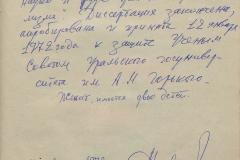 Диссертация закончена,
апробирована и принята 12 января
1972 года к защите Ученым
Советом Уральского госунивер-
ситета им. А.М. Горького.
Женат, имеются двое детей.